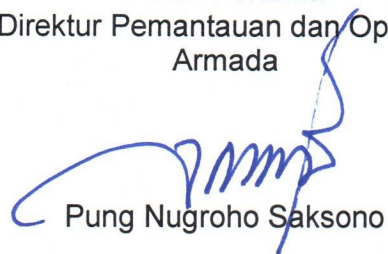 Direktur Pemantauan dan Op
Armada
Pung Nugroho Saksono